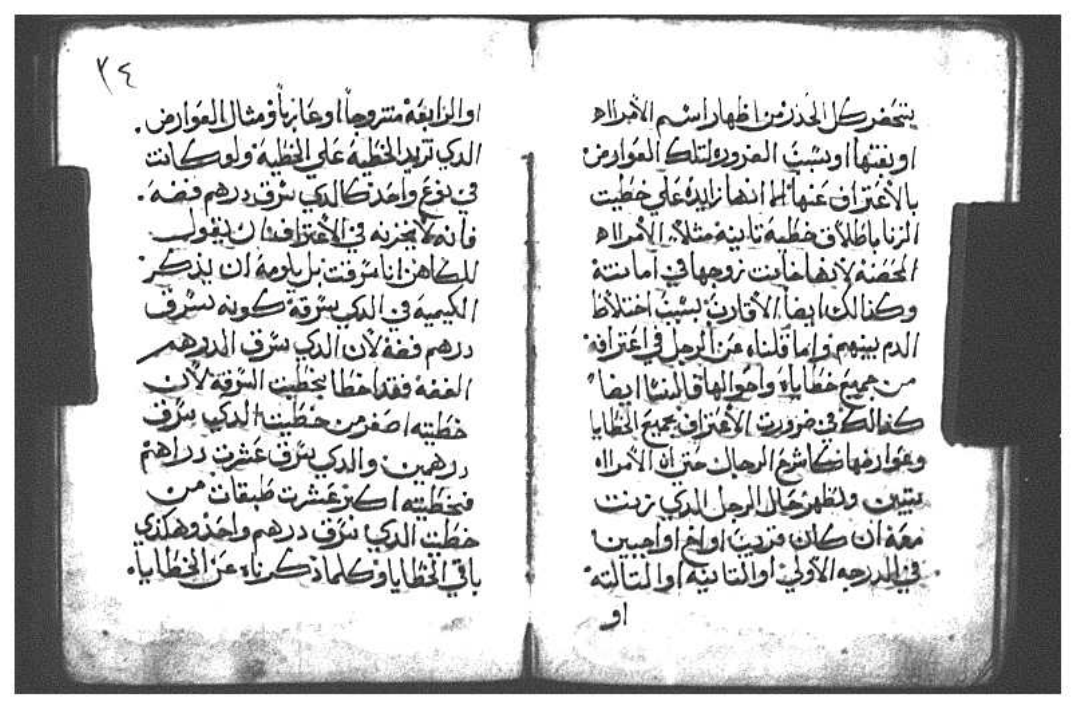 يتحضر كل الحذر من اظهار اسم الامراه
او بعتها او بسبب الضروره لتلك العوارض
بالاعتراف عنها لما انها زايده علي خطيت
الزنا باطلاق خطية تانية مثلا. الامراه
المحصنة لانها خانت زوجها في امانتة
وكذالك ايضا الاقارب بسبب اختلاط
الدم بينهم واما قلناه عن الرجل في اعترافه
من جميع خطاياه واحوالها قالنسا ايضا
كذالك في ضرورت الاعتراف بجميع الخطايا
وعوارضها كاشرع الرجال حتي ان الامراه
تبين وتظهر حال الرجل الدي زنت
معه ان كان قريب او اخ او اجبين
في الدرجه الاولي او التانيه او التالته
او
٢٤
او الرابعة متزوجا او عازبا ومثال العوارض.
الدي تزيد الخطية علي الخطية ولو كانت
في نوع واحد كالدي سرق درهم فضة.
فانه لا يجزيه في الاعتراف بان يقول
للكاهن انا سرقت بل يلزمه ان يذكر
الكيمية في الدي سرقة كونه سرق
درهم فضة لان الدي سرق الدرهم
الفضة فقد اخطا بخطيت السرقة لان
خطيته اصغر من خطيت الدي سرق
درهمين والدي سرق عشرت دراهم
فخطيته اكتر عشرت طبقات من
خطيت الدي سرق درهم واحد وهكذي
باقي الخطايا وكلما ذكرناه عن الخطايا.